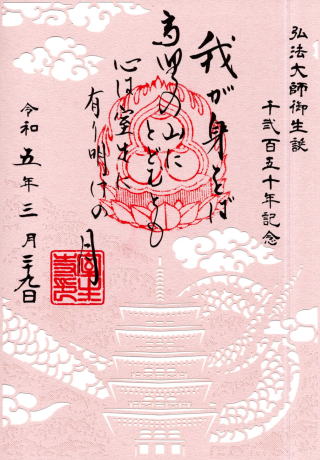 弘法大師御生誕
千弐百五十年記念
我が身をば
高野の山に
とどむとも
心は室生に
有り明けの
月
令和五年三月二十九日
室生
寺印